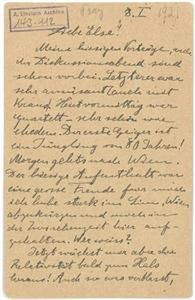 A. Einstein Archive
143-112
Prag
8. I 1921
Liebe Else!
Meine hiesigen Vorträge, und
der Diskussionsabend sind
schon vorbei. Letzterer war
sehr amüsant (auch mit
Kraus). Heut vormittag war
Quartett. Sehr schön war
Der erste Geiger ist
ein Jüngling von 80 Jahren!
Morgen gehts nach Wien.
Der hiesige Aufenthalt war
eine grosse Freude für mich
ich habe stark im Sinn, Wien
abzukürzen und mich in
der Zwischenzeit hier auf-
zuhalten. Wer weiss?
Jetzt wächst mir aber die
Relativität bald zum Hals
heraus! Auch so was verblasst,